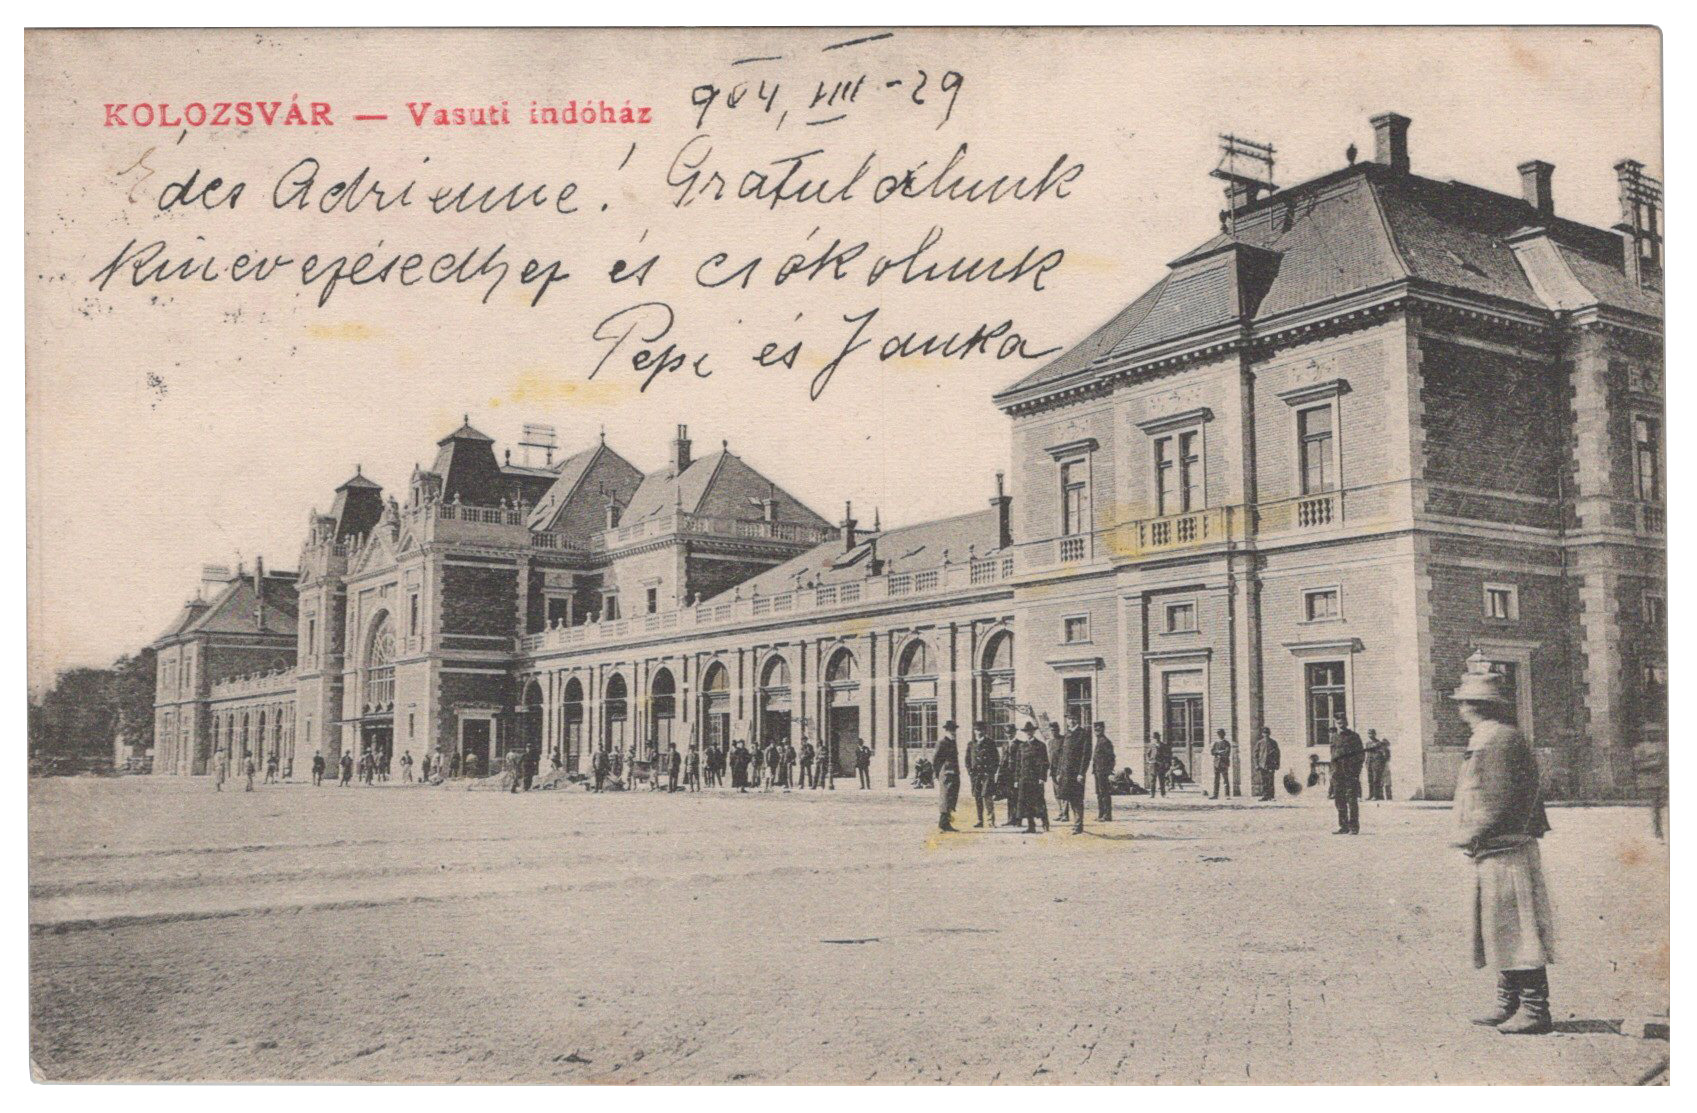 KOLOZSVÁR — Vasuti indóház
904, VIII-29
Édes Adrienne! Gratulálunk
kinevezésedhez és csókolunk
Pepi és Janka